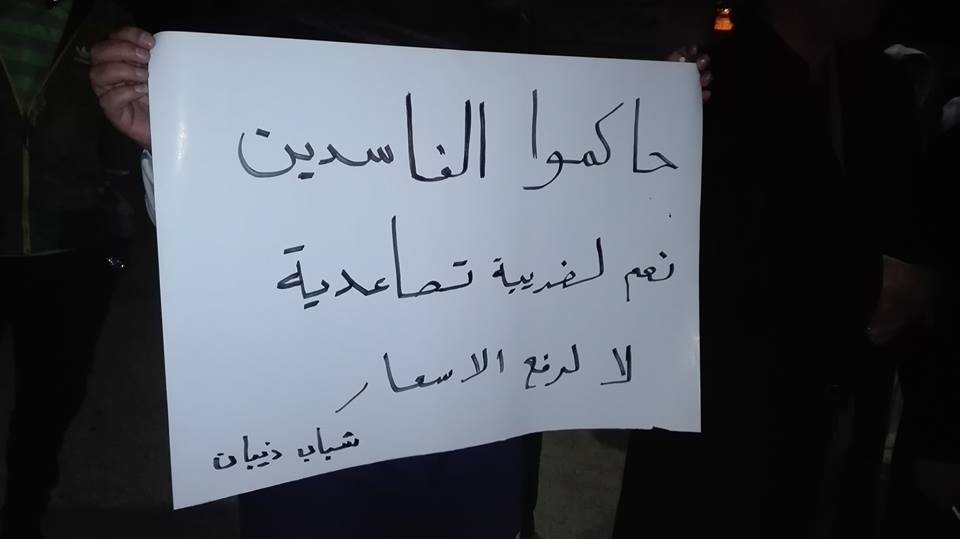 حاكموا الفاسدين
نعم لضريبة تصاعدية
لا لرفع الاسعار
شباب ذيبان